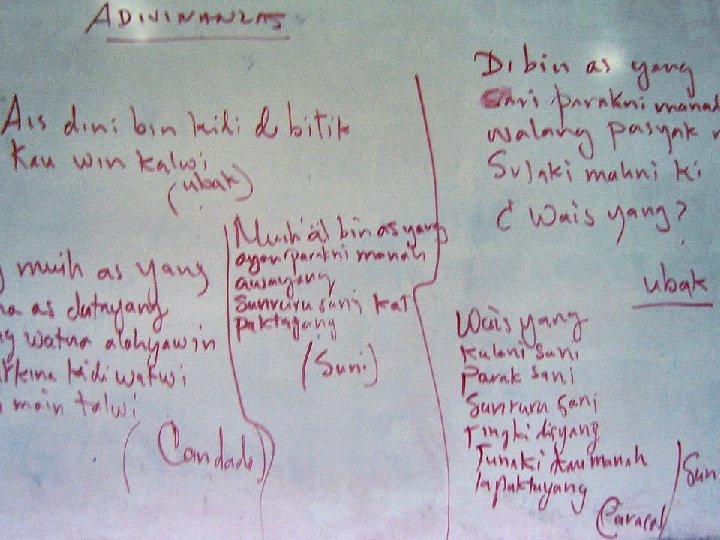 ADIVINANZAS
Ais dini bin kidi de bitik
Kau win kalwi
(ubak)
muih as yang
as dutayang
watna alahyawin
kidi watwi
main talwi
(Candado)
Muih as bin as yang
ayan parakni manah
awayang
Sunruru sani kat
paktayang
(Suni)
Di bin as yang
parakni manah
walang pasyak
Sulaki mahni ki
¿Wais yang?
ubak
Wais yang
Kulani sani
Parak sani
Sunruru sani
Tingki disyang
Tunaki kau manah
lapaktayang
(Caracol